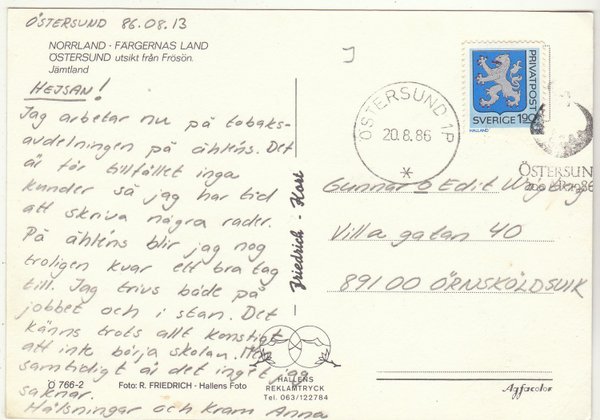 ÖSTERSUND 86.08.13
NORRLAND · FÄRGERNAS LAND
ÖSTERSUND utsikt från Frösön.
Jämtland
HEJSAN!
Jag arbetar nu på tobaks-
avdelningen på åhléns. Det
är för tillfället inga
kunder så jag har tid
att skriva några rader.
På åhléns blir jag nog
troligen kvar ett bra tag
till. Jag trivs både på
jobbet och i stan. Det
känns trots allt konstigt
att inte börja skolan. Men
samtidigt är det inget jag
saknar.
Hälsningar och Kram Anna
Ö 766-2
Foto: R. FRIEDRICH · Hallens Foto
Friedrich - Kort
HALLENS
REKLAMTRYCK
Tel. 063/122784
ÖSTERSUND 1P
20.8.86
PRIVATPOST
SVERIGE 190
HALLAND
ÖSTERSUND
Gunnar o Edit
Villa gatan 40
89100 ÖRNSKÖLDSVIK
Agfacolor